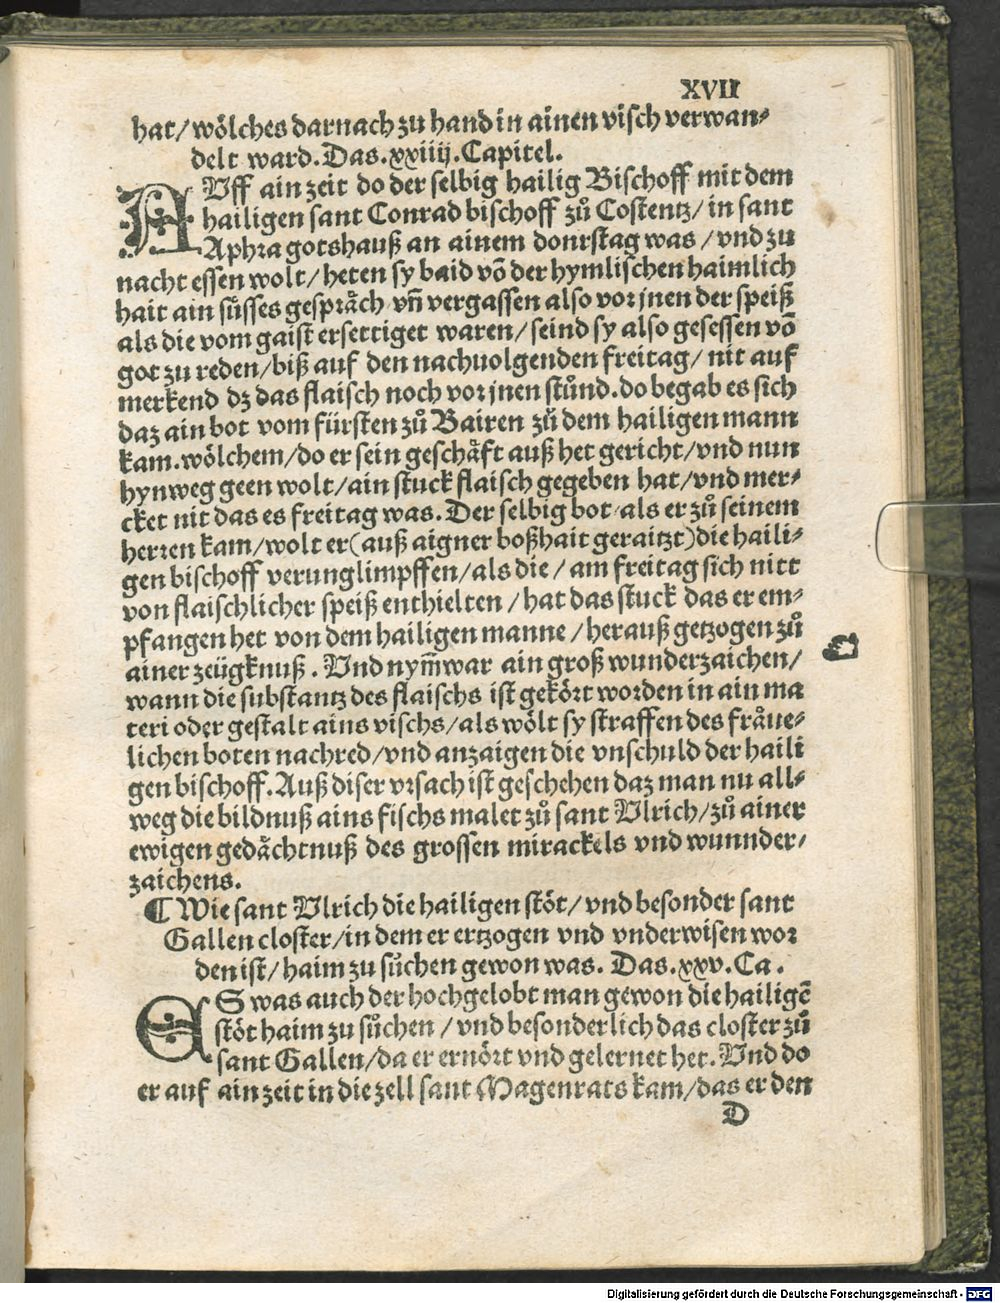 XVII
hat/wölches darnach zu hand in ainen visch verwan-
delt ward. Das .xxiiij. Capitel.
AUff ain zeit do der selbig hailig Bischoff mit dem
hailigen sant Conrad bischoff zů Costentz/in sant
Aphra gotshauß an ainem donrstag was/vnd zu
nacht essen wolt/heten sy baid võ der hymlischen haimlich
hait ain süsses gespräch vñ vergassen also vor jnen der speiß
als die vom gaist ersettiget waren/seind sy also gesessen võ
got zu reden/biß auf den nachuolgenden freitag/nit auf
merkend dz das flaisch noch vor jnen stůnd. do begab es sich
daz ain bot vom fürsten zů Bairen zů dem hailigen mann
kam. wölchem/do er sein geschäft auß het gericht/vnd nun
hynweg geen wolt/ain stuck flaisch gegeben hat/vnd mer-
cket nit das es freitag was. Der selbig bot/als er zů seinem
herren kam/wolt er(auß aigner boßhait geraitzt)die haili-
gen bischoff verunglimpffen/als die/am freitag sich nitt
von flaischlicher speiß enthielten/hat das stuck das er em-
pfangen het von dem hailigen manne/herauß getzogen zů
ainer zeügknuß. Vnd nym̃war ain groß wunderzaichen/
wann die substantz des flaischs ist gekört worden in ain ma
teri oder gestalt ains vischs/als wölt sy straffen des fräue-
lichen boten nachred/vnd anzaigen die vnschuld der haili
gen bischoff. Auß diser vrsach ist geschehen daz man nu all-
weg die bildnuß ains fischs malet zů sant Vlrich/zů ainer
ewigen gedächtnuß des grossen mirackels vnd wunnder-
zaichens.
¶ Wie sant Vlrich die hailigen stöt/vnd besonder sant
Gallen closter/in dem er ertzogen vnd vnderwisen wor
den ist/haim zu sůchen gewon was. Das .xxv. Ca.
ES was auch der hochgelobt man gewon die hailigẽ
stöt haim zu sůchen/vnd besonderlich das closter zů
sant Gallen/da er ernört vnd gelernet het. Vnd do
er auf ain zeit in die zell sant Magenrats kam/das er den
D
Digitalisierung gefördert durch die Deutsche Forschungsgemeinschaft - DFG